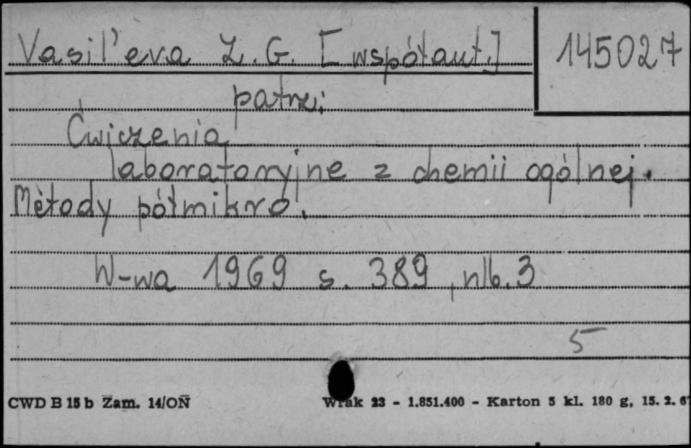 Vasil'eva Z. G. [współaut.]
145027
patrz:
Ćwiczenia
laboratoryjne z chemii ogólnej.
Metody półmikro.
W-wa 1969 s. 389, nlb. 3
5
CWD B 15 b Zam. 14/OŃ
Wrak 23 - 1.851.400 - Karton 5 kl. 180 g, 15. 2. 6